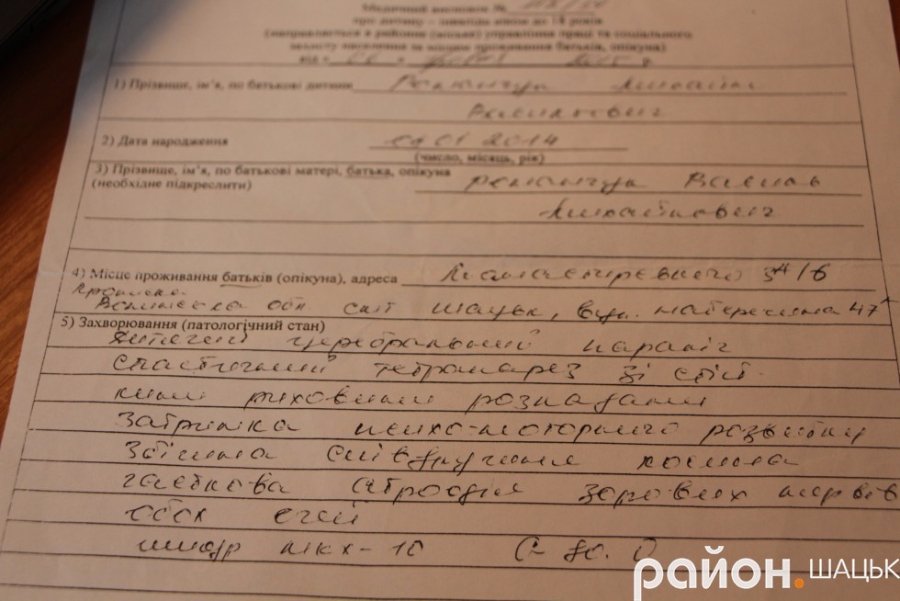 Медичний висновок №
про дитину – інваліда віком до 18 років
(направляється в районне (міське) управління праці та соціального
захисту населення за місцем проживання батьків, опікуна)
від
1) Прізвище, ім'я, по батькові дитини Романчук Михайло
Васильович
2) Дата народження 01 2014
(число, місяць, рік)
3) Прізвище, ім'я, по батькові матері, батька, опікуна Романчук Василь
(необхідне підкреслити)
Михайлович
4) Місце проживання батьків (опікуна), адреса
Волинська обл смт Шацьк, вул. 47
5) Захворювання (патологічний стан)
Дитячий церебральний параліч
спастичний тетрапарез зі стій-
кими руховими розладами
Затримка психо-моторного розвитку
Збіжна співдружня косина
часткова атрофія зорових нервів
обох очей
шифр МКХ-10
район.ШАЦЬК